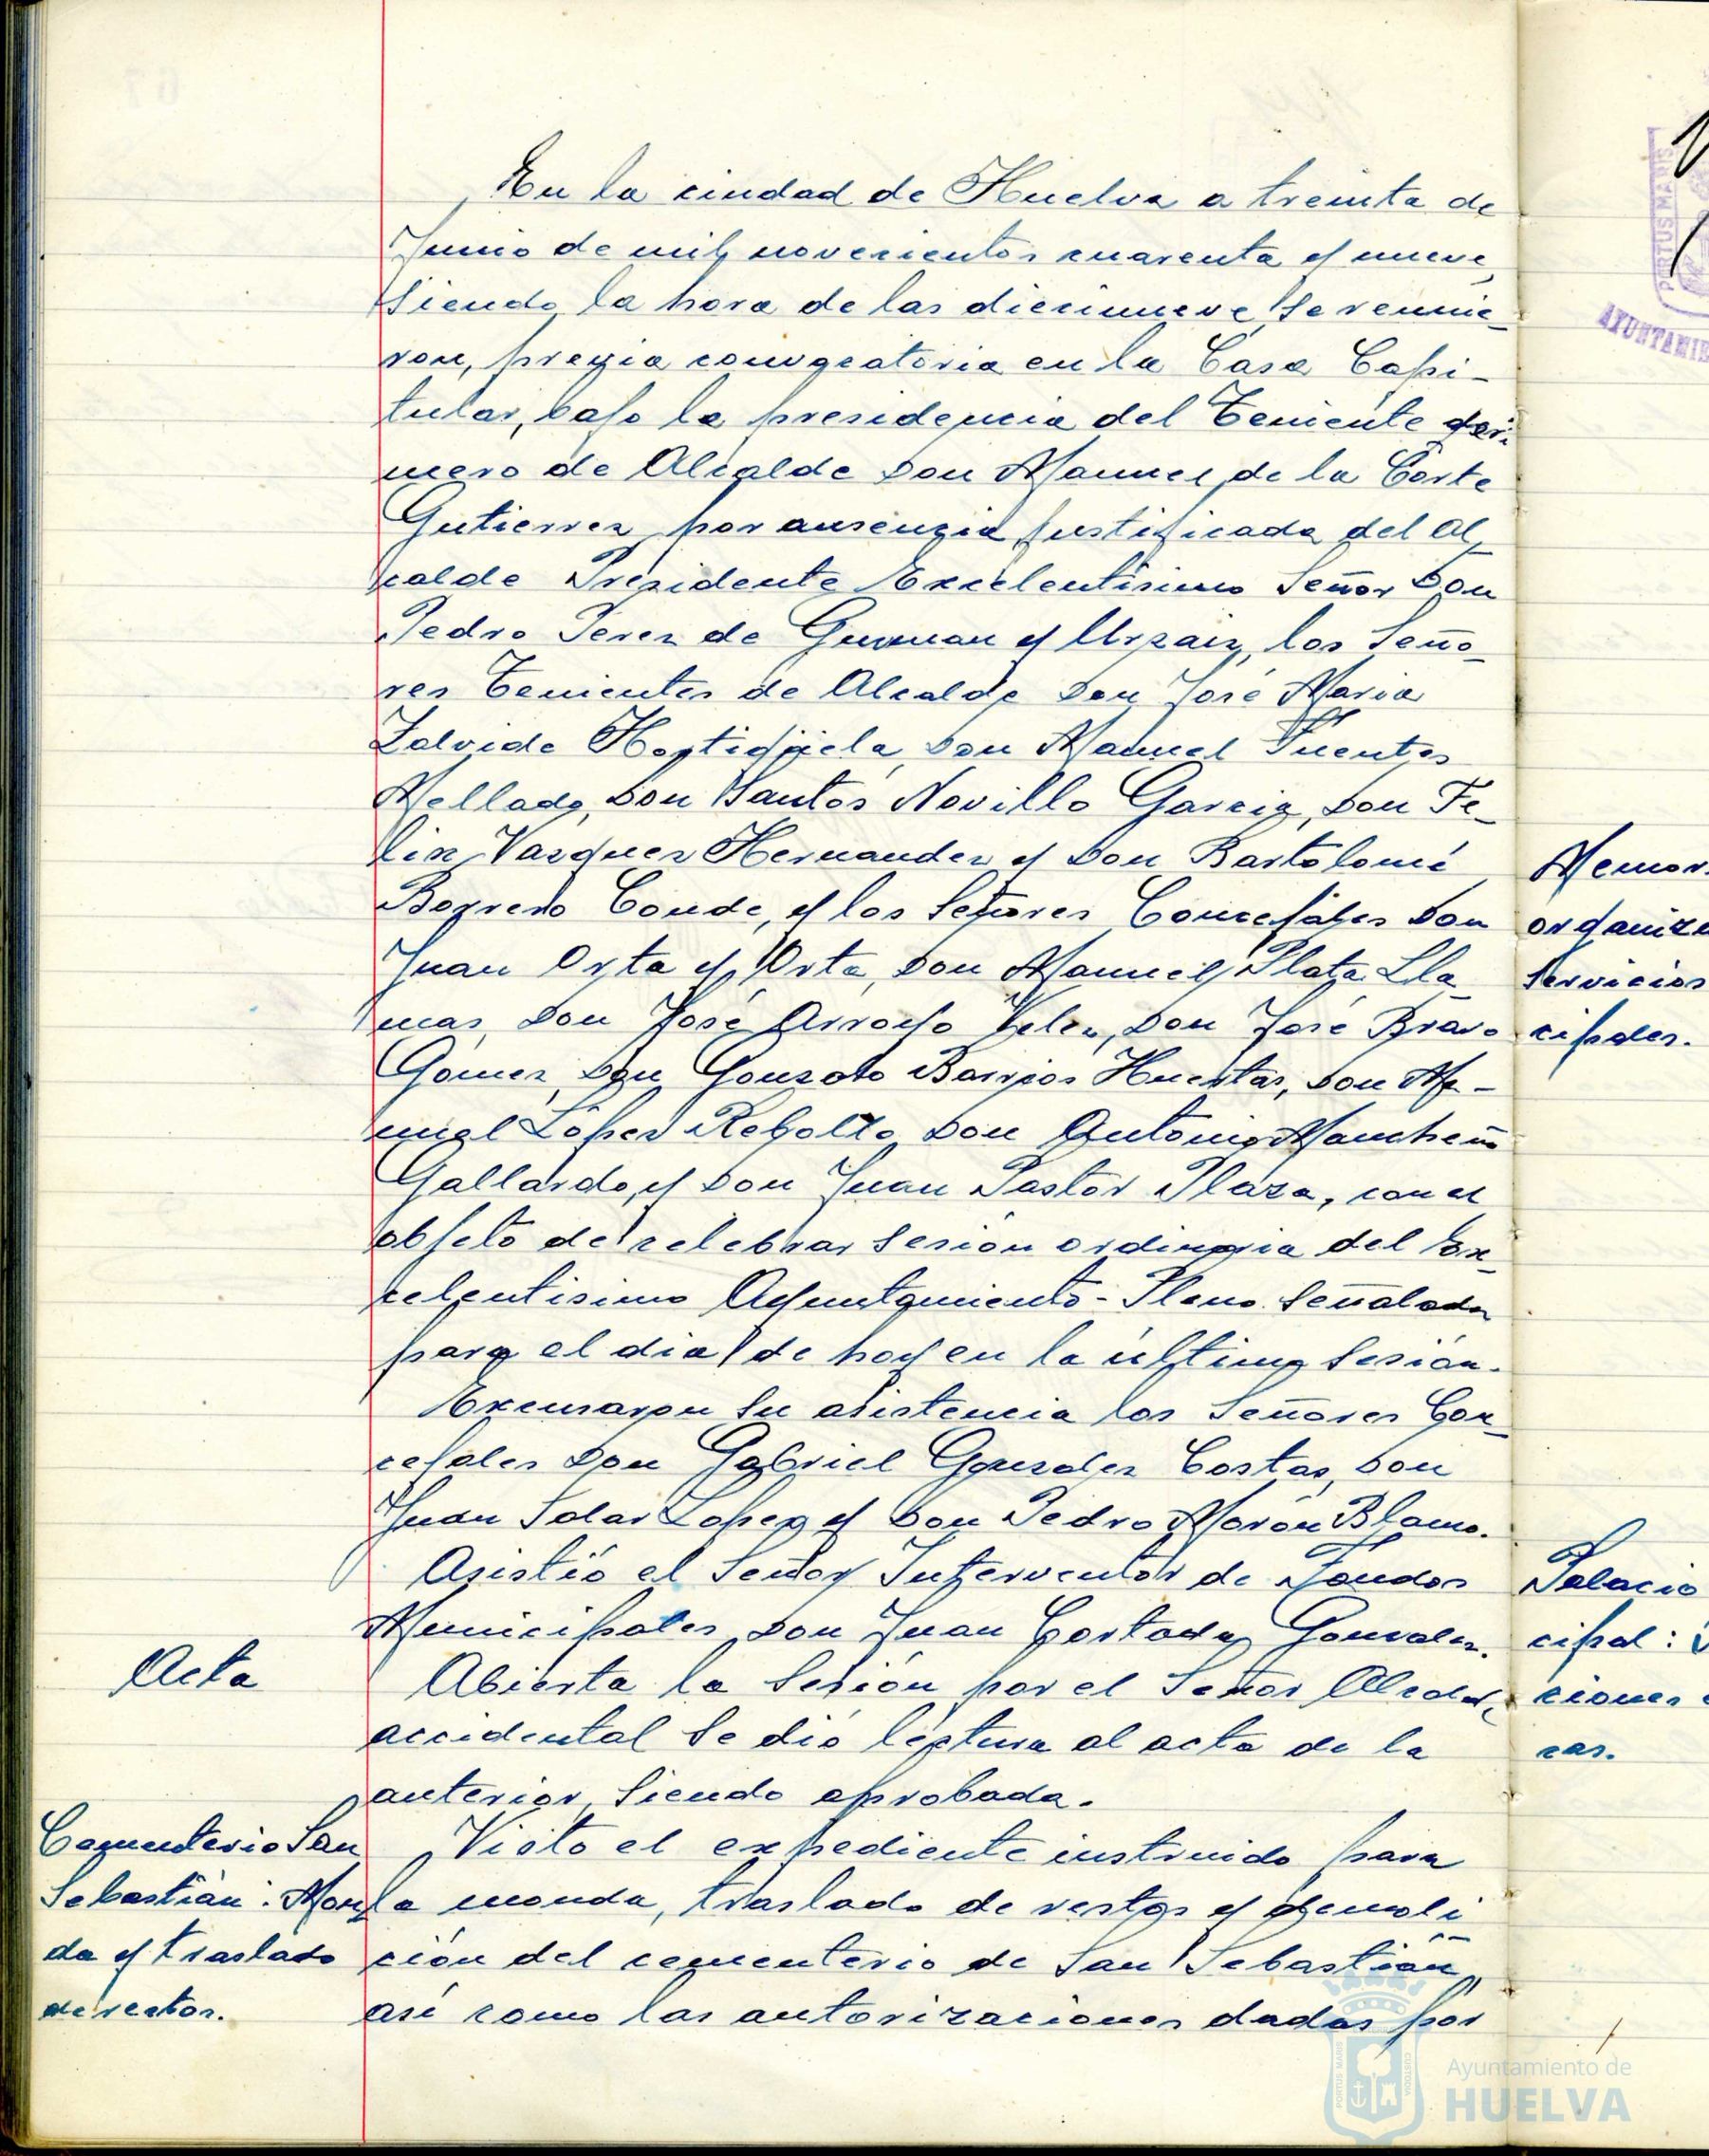 En la ciudad de Huelva a treinta de
Junio de mil novecientos cuarenta y nueve,
siendo la hora de las diecinueve se reunie-
ron, previa convocatoria en la Casa Capi-
tular, bajo la presidencia del Teniente pri-
mero de Alcalde Don Manuel de la Corte
Gutierrez por ausencia justificada del Al-
calde Presidente Excelentísimo Señor Don
Pedro Perez de Guzman y Urzaiz, los Seño-
res Tenientes de Alcalde Don José Maria
Zalvide Hortigüela, Don Manuel Fuentes
Mellado, Don Santos Novillo Garcia, Don Fe-
lix Vazquez Hernandez y Don Bartolomé
Borrero Conde, y los Señores Concejales Don
Juan Orta y Orta, Don Manuel Plata Lla-
mas, Don José Arroyo Velez, Don José Bravo
Gómez, Don Gonzalo Barrios Huertas, Don Ma-
nuel López Rebollo, Don Antonio Mancheño
Gallardo, y Don Juan Pastor Plaza, con el
objeto de celebrar sesión ordinaria del Ex-
celentisimo Ayuntamiento-Pleno señalada
para el dia de hoy en la última sesión.
Excusaron su asistencia los Señores Con-
cejales Don Gabriel Gonzalez Costas, Don
Juan Solar Lopez y Don Pedro Morón Blanco.
Asistió el Señor Interventor de Fondos
Municipales, Don Juan Cortada Gonzalez.
Acta
Abierta la sesión por el Señor Alcalde
accidental se dió lectura al acta de la
anterior, siendo aprobada.
Cementerio San
Sebastián: Mon-
da y traslado
de restos.
Visto el expediente instruido para
la monda, traslado de restos y demoli-
ción del cementerio de San Sebastián,
asi como las autorizaciones dadas por
Memor
organiza
servicios
cipales.
Palacio
cipal:
ciones
cas.
PORTUS MARIS
AYUNTAMIE
PORTUS MARIS
CUSTODIA
Ayuntamiento de
HUELVA